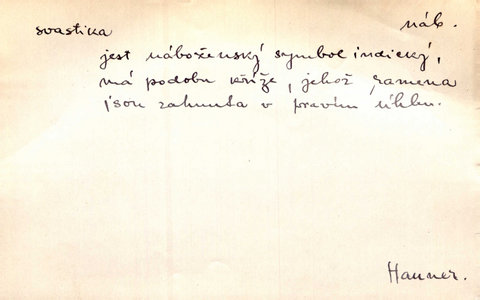 svastika náb.
jest náboženský symbol indický,
má podobu kříže, jehož ramena
jsou zahnuta v pravém úhlu.
Hanner.